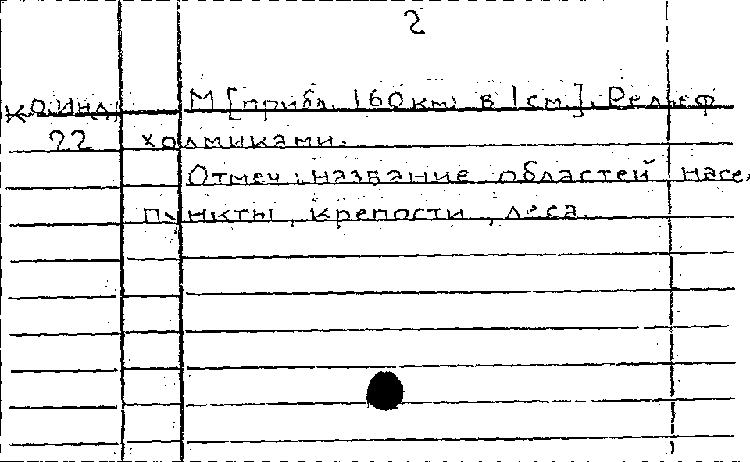 2
КОИНЛ М [прибл. 160км. в 1см.]. Рельеф
22 холмиками.
Отмеч: название областей насе.
пункты, крепости, леса.